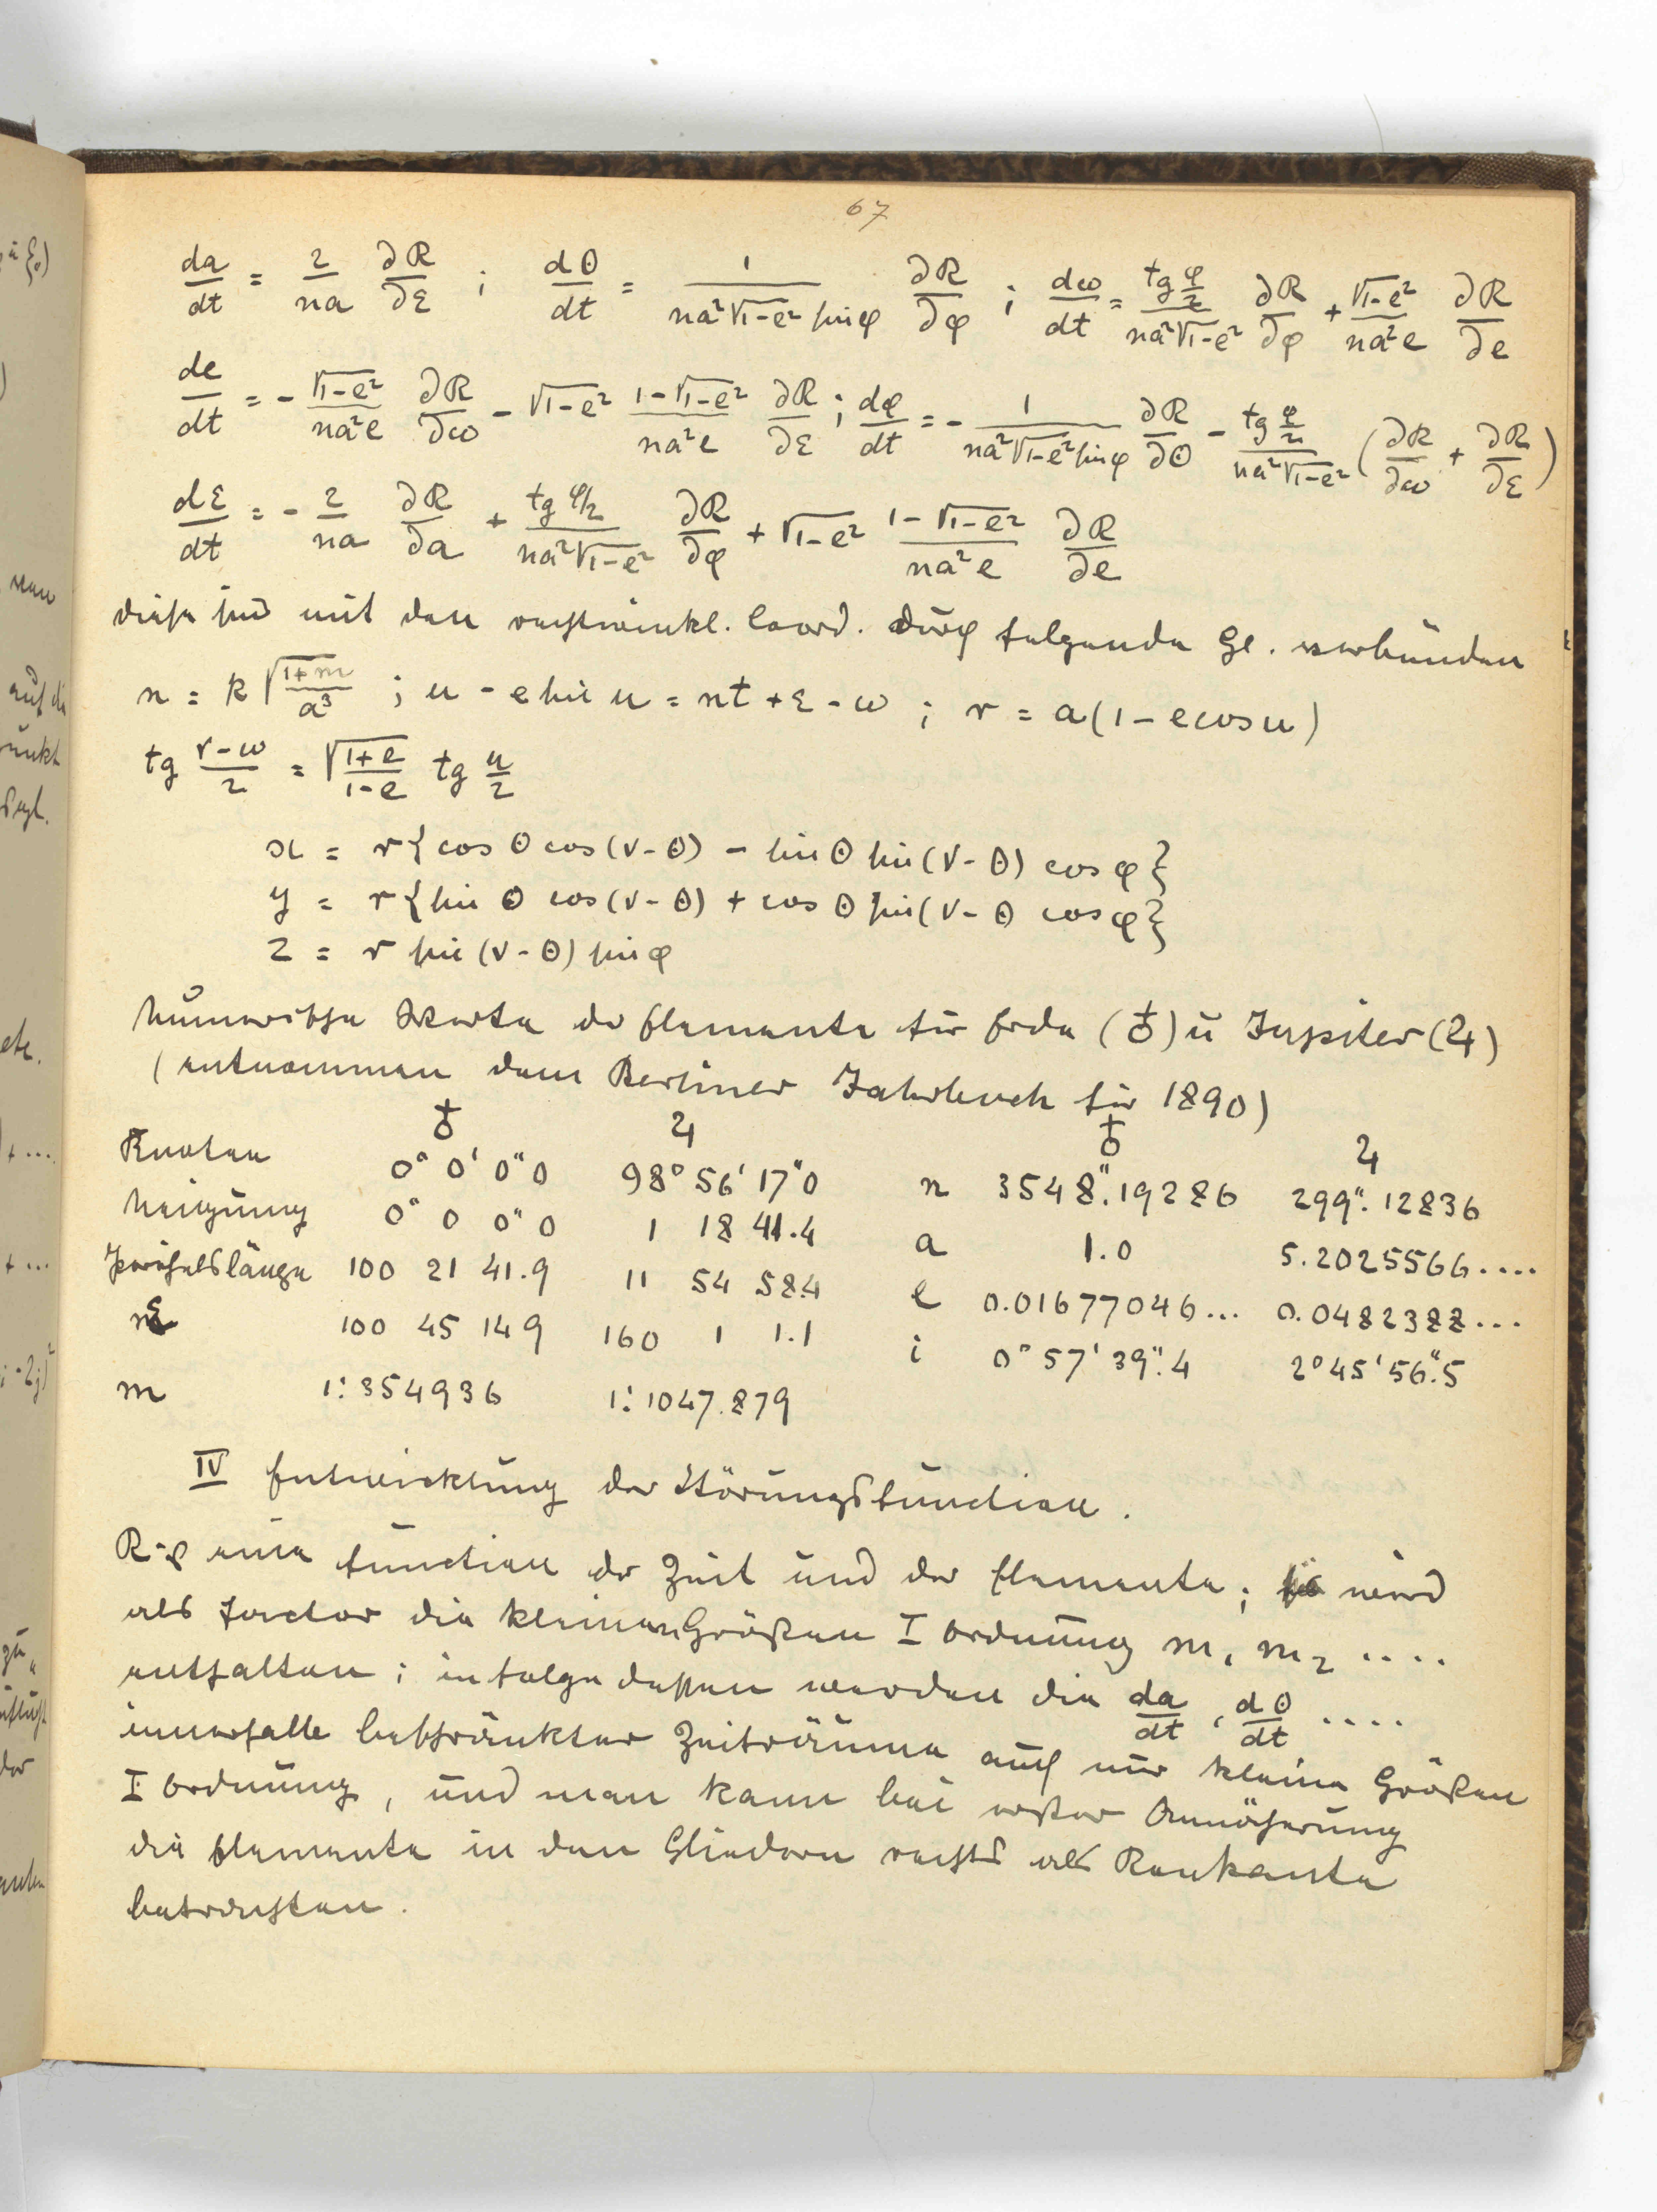 67
da/dt = 2/na ∂R/∂ε ; dθ/dt = 1/(na²√1-e² sin φ) ∂R/∂φ ; dω/dt = tg φ/2 /(na²√1-e²) ∂R/∂φ + √1-e²/na²e ∂R/∂e
de/dt = - √1-e²/na²e ∂R/∂ω - √1-e² (1-√1-e²)/na²e ∂R/∂ε ; dφ/dt = - 1/(na²√1-e² sin φ) ∂R/∂θ - tg φ/2 /(na²√1-e²) (∂R/∂ω + ∂R/∂ε)
dε/dt = - 2/na ∂R/∂a + tg φ/2 /(na²√1-e²) ∂R/∂φ + √1-e² (1-√1-e²)/na²e ∂R/∂e
diese sind mit den rechtwinkl. Coord. durch folgende Gl. verbunden
n = k √(1+m)/a³ ; u - e sin u = nt + ε - ω ; r = a(1 - e cos u)
tg (v-ω)/2 = √(1+e)/(1-e) tg u/2
x = r{cos θ cos(v-θ) - sin θ sin(v-θ) cos φ}
y = r{sin θ cos(v-θ) + cos θ sin(v-θ cos φ}
z = r sin(v-θ) sin φ
Numerische Werte der Elemente für Erde (♁) u Jupiter (♃)
(entnommen dem Berliner Jahrbuch für 1890)
♁ ♃ ♁ ♃
Knoten 0° 0' 0"0 98° 56' 17"0 n 3548".19286 299".12836
Neigung 0° 0 0"0 1 18 41.4 a 1.0 5.2025566....
Perihelslänge 100 21 41.9 11 54 58.4 e 0.01677046... 0.0482388...
ε 100 45 14 9 160 1 1.1 i 0° 57' 39".4 2° 45' 56".5
m 1:354936 1:1047.879
IV Entwicklung der Störungsfunction.
R ist eine Function der Zeit und der Elemente; wird
als Factor die kleinen Größen I Ordnung m₁ m₂ ....
enthalten; in folge dessen werden die da/dt, dθ/dt ....
innerhalb beschränkter Zeiträume auch nur kleine Größen
I Ordnung, und man kann bei erster Annäherung
die Elemente in den Gliedern rechts als Konstante
betrachten.